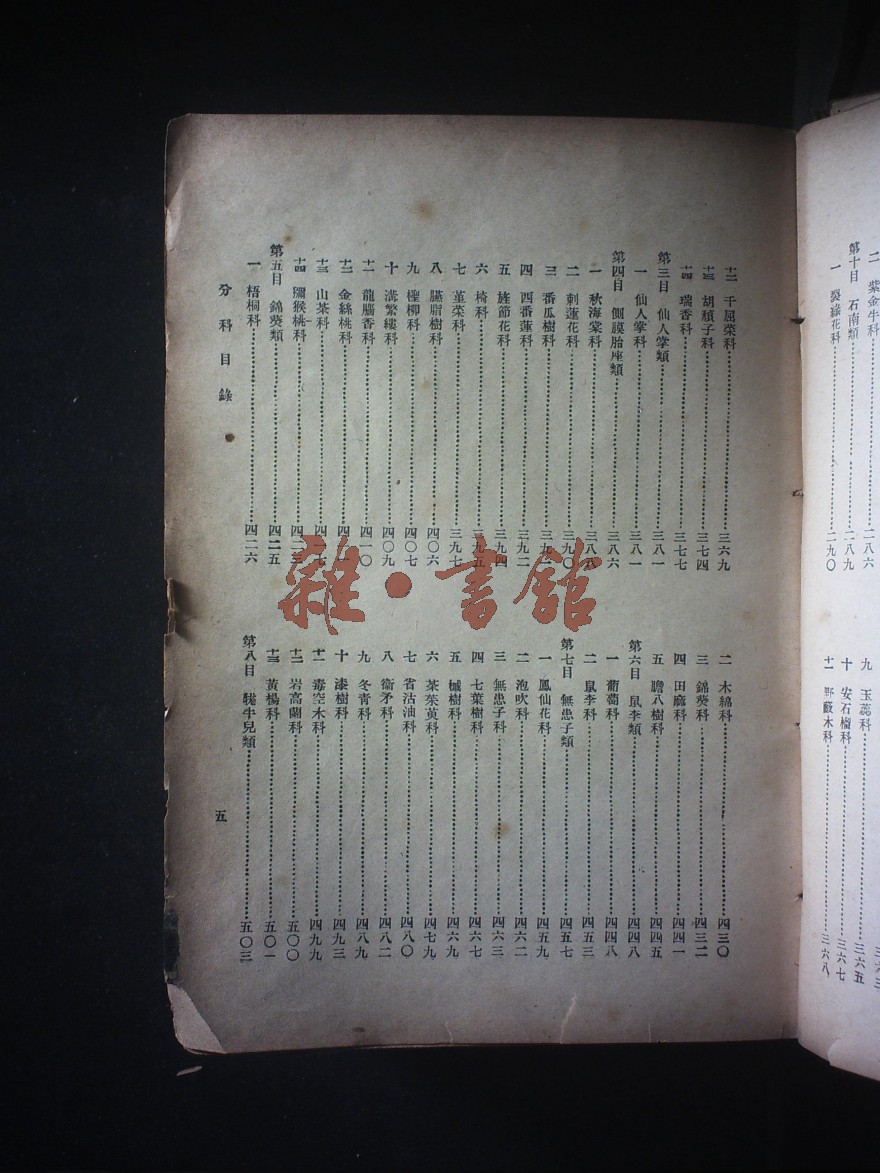 十二 千屈菜科 三六九
十三 胡頹子科 三七四
十四 瑞香科 三七七
第三目 仙人掌類 三八一
一 仙人掌科 三八一
第四目 側膜胎座類 三八六
一 秋海棠科 三八八
二 刺蓮花科 三九〇
三 番瓜樹科
四 西番蓮科 三九二
五 旌節花科 三九四
六 椅科 三九五
七 堇菜科 三九七
八 臙脂樹科 四〇六
九 檉柳科 四〇七
十 溝繁縷科 四〇九
十一 龍腦香科 四一〇
十二 金絲桃科
十三 山茶科 四一七
十四 獼猴桃科 四二三
第五目 錦葵類 四二五
一 梧桐科 四二六
二 木綿科 四三〇
三 錦葵科 四三二
四 田麻科 四四一
五 膽八樹科 四四五
第六目 鼠李類 四四八
一 葡萄科 四四八
二 鼠李科 四五三
第七目 無患子類 四五七
一 鳳仙花科 四五九
二 泡吹科 四六二
三 無患子科 四六三
四 七葉樹科 四六七
五 槭樹科 四六九
六 茶茱萸科 四七九
七 省沽油科 四八〇
八 衞矛科 四八二
九 冬青科 四八九
十 漆樹科 四九三
十一 毒空木科 四九九
十二 岩高蘭科 五〇〇
十三 黃楊科 五〇一
第八目 牻牛兒類 五〇三
分科目錄
五
二 紫金牛科 二八六
第十目 石南類 二八九
一 裂緣花科 二九〇
九 玉蕊科 三六五
十 安石榴科 三六七
十一 野蘞木科 三六八
雜·書館